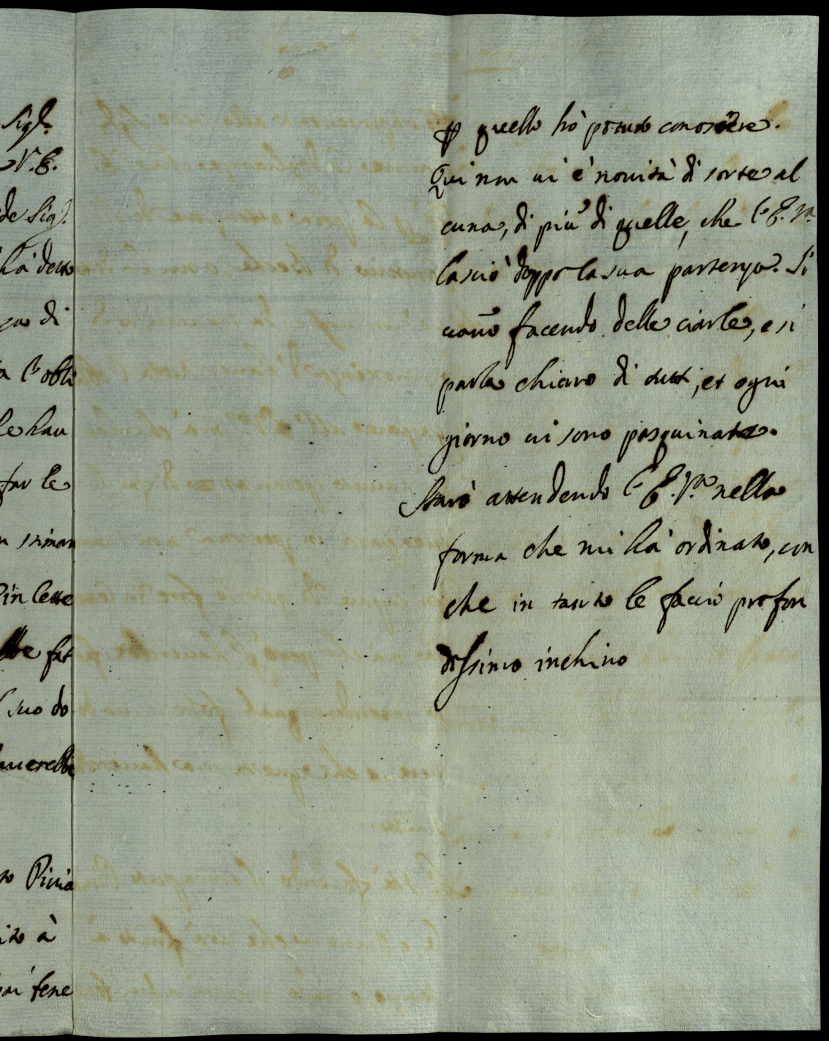 Sig.r
V.E.
de Sig.
hà detto
di
l'obli
le hau
far le
in lette
fat
suo do
auerebbe
Piuia
à
fene
p quello hò potuto conoscere.
Qui non ui è nouità di sorte al
cuna, di più di quelle, che l'E.Va
lasciò doppo la sua partenza. Si
uano facendo delle ciarle, e si
parla chiaro di tutti, et ogni
giorno ui sono pasquinate.
Starò attendendo l'E.Va nella
forma che mi hà ordinato, con
che in tanto le faccio profon
dissimo inchino